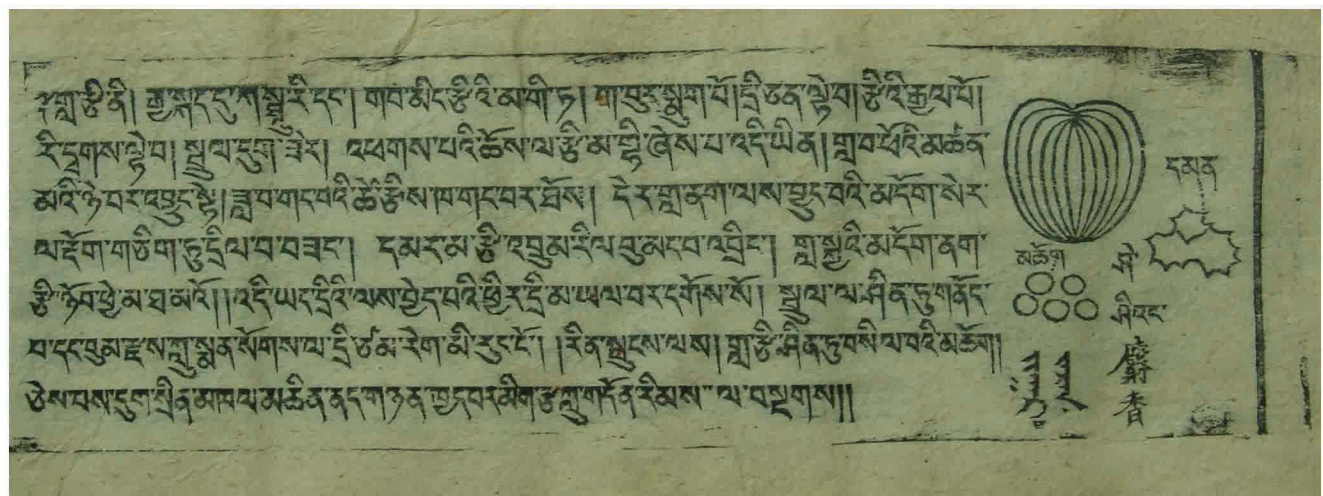 ༈ གླ་རྩི་ནི། རྒྱ་སྐད་དུ་ཀ་སྟཱུ་རི་དང་། གབ་མིང་རྩི་འི་མ་གི་ཏ། ག་བུར་སྨུག་པོ། དྲི་ཙན་ལྟེ་བ། རྩི་འི་རྒྱལ་པོ།
རི་དྭགས་ལྟེ་བ། སྦྲུལ་དུག་ཟེར། འཕགས་པའི་ཆོས་ལ་རྩི་མ་ཞེས་པ་འདི་ཡིན། གླ་བ་ཕོའི་མཚན་
མའི་ཉེ་བར་འབྱུང་སྟེ། ཟླ་བ་གང་བའི་ཚེ་རྩིས་ཁ་གང་བར་ཐོས། དེ་ར་གླ་ནག་ལས་བྱུང་བའི་མདོག་སེར་
ལ་རྡོག་གཅིག་ཏུ་དྲིལ་བ་བཟང་། དམར་མ་རྩི་འབྲུམ་རིལ་བུ་མང་བ་འབྲིང་། གླ་སྐྱའི་མདོག་ནག་
རྩི་ཉོབ་ཕྱེ་མ་ཐ་མའོ། །འདི་ཡང་དྲིའི་ལས་བྱེད་པའི་ཕྱིར་དྲི་མ་ཡལ་བར་དགོས་སོ། སྦྲུལ་ལ་ཤིན་ཏུ་གནོད་
པ་དང་བུམ་རྫས་ཀླུ་སྨན་སོགས་ལ་དྲི་ཙམ་རེག་མི་རུང་ངོ་། །རིན་སྤུངས་ལས། གླ་རྩི་ཤིན་ཏུ་བསིལ་བའི་མཆོག།
ཅེས་པས་དུག་སྲིན་མཁལ་མཆིན་ནད་གཉན་ཁྱད་པར་མིག་རྩ་ཀླུ་གདོན་རིམས་ལ་བསྔགས།།
མཆོག
དམན
ཤེ་
ཤིའང་
麝香